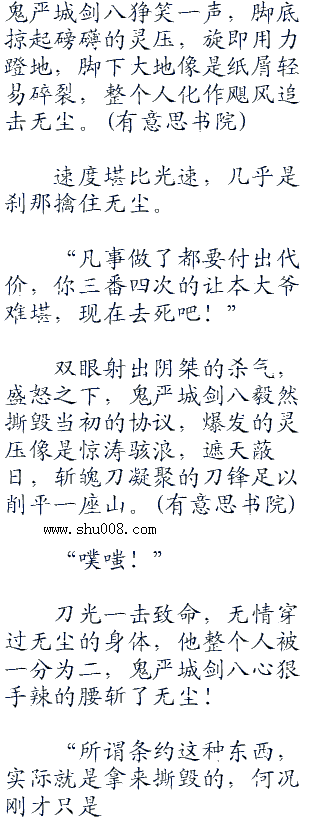 鬼严城剑八狰笑一声，脚底
掠起磅礴的灵压，旋即用力
蹬地，脚下大地像是纸屑轻
易碎裂，整个人化作飓风追
击无尘。(有意思书院)
速度堪比光速，几乎是
刹那擒住无尘。
“凡事做了都要付出代
价，你三番四次的让本大爷
难堪，现在去死吧！”
双眼射出阴桀的杀气，
盛怒之下，鬼严城剑八毅然
撕毁当初的协议，爆发的灵
压像是惊涛骇浪，遮天蔽
日，斩魄刀凝聚的刀锋足以
削平一座山。(有意思书院)
www.shu008.com
“噗嗤！”
刀光一击致命，无情穿
过无尘的身体，他整个人被
一分为二，鬼严城剑八心狠
手辣的腰斩了无尘！
“所谓条约这种东西，
实际就是拿来撕毁的，何况
刚才只是